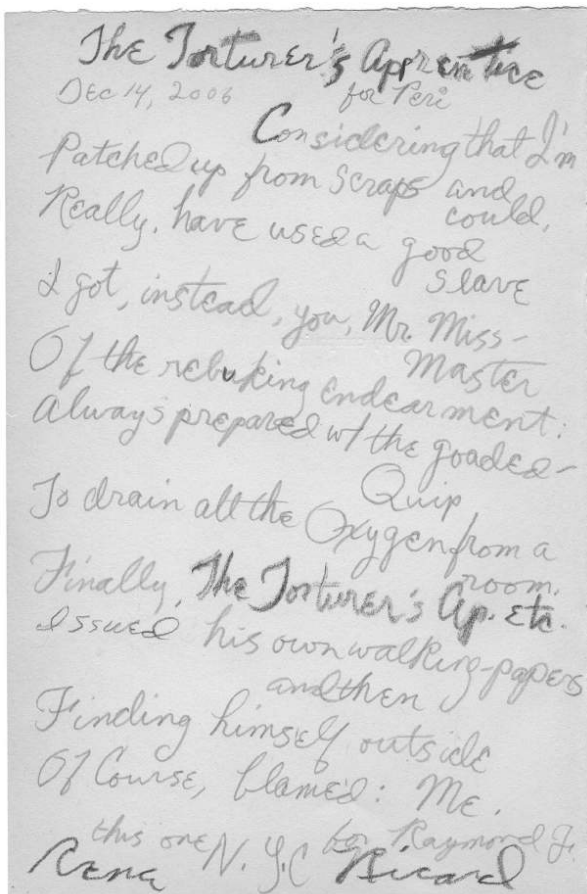 The Torturer's Apprentice
Dec 14, 2006 for Peri
Considering that I'm
Patched up from scraps and
could,
Really, have used a good
slave
I got, instead, you, Mr. Miss-
Master
Of the rebuking endearment:
Always prepared w/ the goaded-
Quip
To drain all the Oxygen from a
room.
Finally, The Torturer's Ap. etc.
Issued his own walking-papers
and then
Finding himself outside
Of Course, blamed: Me.
this one N.Y.C for Raymond F.
Rene Ricard